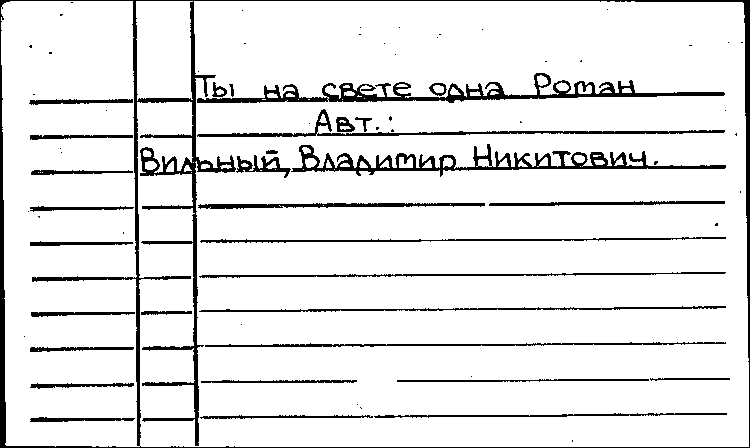 Ты на свете одна Роман
Авт.:
Вильный, Владимир Никитович.